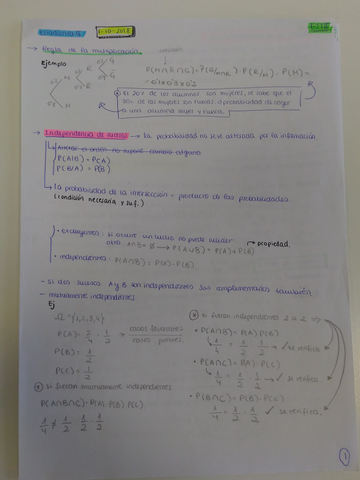 1-10-2018
→ Regla de la multiplicación
Ejemplo
P(M∩R∩G) = P(G/M∩R) · P(R/M) · P(M) =
El 20% de los alumnos son mujeres, si sabe que el
de una alumna mujer y rubia.
→ Independencia de sucesos → La probabilidad no se ve alterada por la información.
P(A|B) = P(A)
P(B|A) = P(B)
↳ La probabilidad de la intersección = producto de las probabilidades.
(condición necesaria y suf.)
• excluyentes: si ocurre un suceso no puede ocurrir
otro A∩B = Ø → P(A∪B) = P(A) + P(B) → propiedad
• independientes: P(A∩B) = P(A) · P(B)
- Si dos sucesos A y B son independientes sus complementarios también
- mutuamente independientes
Ej
Ω = {1,2,3,4}
P(A) = 2/4 = 1/2 → casos favorables / casos posibles
P(B) = 1/2
P(C) = 1/2
si fueran mutuamente independientes
P(A∩B∩C) = P(A) · P(B) · P(C)
1/4 ≠ 1/2 · 1/2 · 1/2
si fueran independientes 2 a 2 →
• P(A∩B) = P(A) · P(B)
↳ 1/4 = 1/2 · 1/2 → ✓ se verifica
• P(A∩C) = P(A) · P(C)
↳ 1/4 = 1/2 · 1/2 ✓ se verifica
• P(B∩C) = P(B) · P(C)
1/4 = 1/2 · 1/2 ✓ se verifica
1